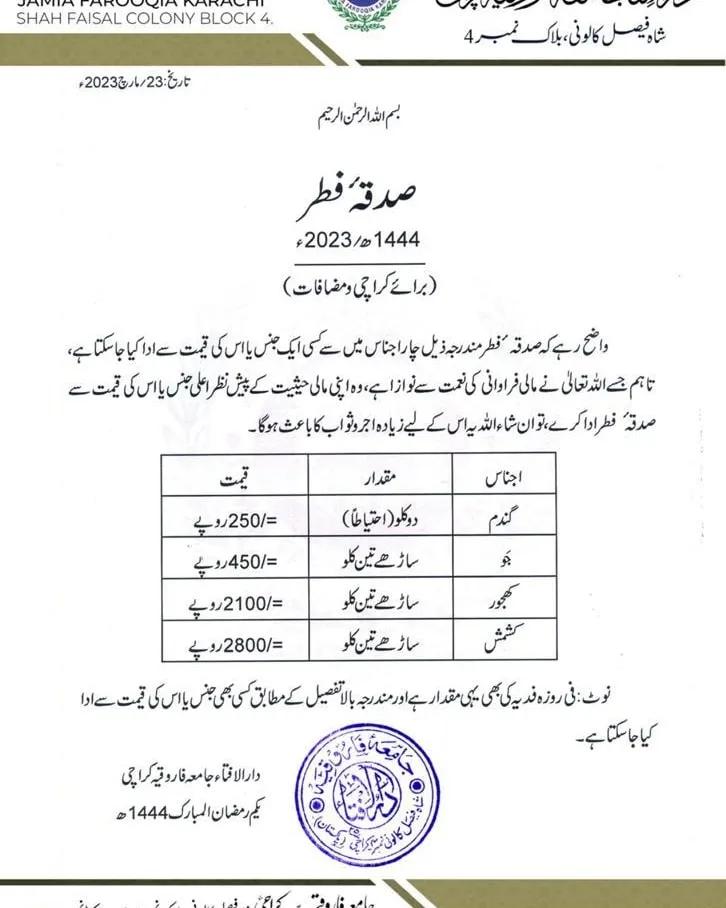 JAMIA FAROOQIA KARACHI
SHAH FAISAL COLONY BLOCK 4.
شاہ فیصل کالونی، بلاک نمبر 4
تاریخ: 23؍مارچ 2023ء
بسم اللہ الرحمٰن الرحیم
صدقۂ فطر
1444ھ؍2023ء
(برائے کراچی ومضافات)
واضح رہے کہ صدقۂ فطر مندرجہ ذیل چار اجناس میں سے کسی ایک جنس یا اس کی قیمت سے ادا کیا جاسکتا ہے،
تاہم جسے اللہ تعالیٰ نے مالی فراوانی کی نعمت سے نوازا ہے، وہ اپنی مالی حیثیت کے پیش نظر اعلی جنس یا اس کی قیمت سے
صدقۂ فطر ادا کرے، تو ان شاء اللہ یہ اس کے لیے زیادہ اجر وثواب کا باعث ہوگا۔
اجناس مقدار قیمت
گندم دو کلو (احتیاطاً) 250/= روپے
جَو ساڑھے تین کلو 450/= روپے
کھجور ساڑھے تین کلو 2100/= روپے
کشمش ساڑھے تین کلو 2800/= روپے
نوٹ: فی روزہ فدیہ کی بھی یہی مقدار ہے اور مندرجہ بالا تفصیل کے مطابق کسی بھی جنس یا اس کی قیمت سے ادا
کیا جاسکتا ہے۔
دارالافتاء جامعہ فاروقیہ کراچی
یکم رمضان المبارک 1444ھ
جامعہ فاروقیہ
دارالافتاء
شاہ فیصل کالونی نمبر ۴ کراچی ۲۵ (پاکستان)